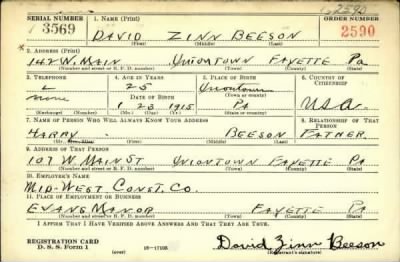 2590
SERIAL NUMBER 1. NAME (Print) ORDER NUMBER
3569 DAVID ZINN BEESON 2590
(First) (Middle) (Last)
2. ADDRESS (Print)
142 W. MAIN UNIONTOWN FAYETTE PA
(Number and street or R. F. D. number) (Town) (County) (State)
3. TELEPHONE 4. AGE IN YEARS 5. PLACE OF BIRTH 6. COUNTRY OF CITIZENSHIP
25 Uniontown
DATE OF BIRTH (Town or county)
none 1 23 1915 PA U.S.A.
(Exchange) (Number) (Mo.) (Day) (Yr.) (State or country)
7. NAME OF PERSON WHO WILL ALWAYS KNOW YOUR ADDRESS 8. RELATIONSHIP OF THAT PERSON
HARRY BEESON FATHER
(First) (Middle) (Last)
9. ADDRESS OF THAT PERSON
107 W. MAIN ST UNIONTOWN FAYETTE PA
(Number and street or R. F. D. number) (Town) (County) (State)
10. EMPLOYER'S NAME
MID-WEST CONST. CO.
11. PLACE OF EMPLOYMENT OR BUSINESS
EVANS MANOR FAYETTE PA
(Number and street or R. F. D. number) (Town) (County) (State)
I AFFIRM THAT I HAVE VERIFIED ABOVE ANSWERS AND THAT THEY ARE TRUE.
REGISTRATION CARD
D. S. S. Form 1 (over) David Zinn Beeson
(Registrant's signature)